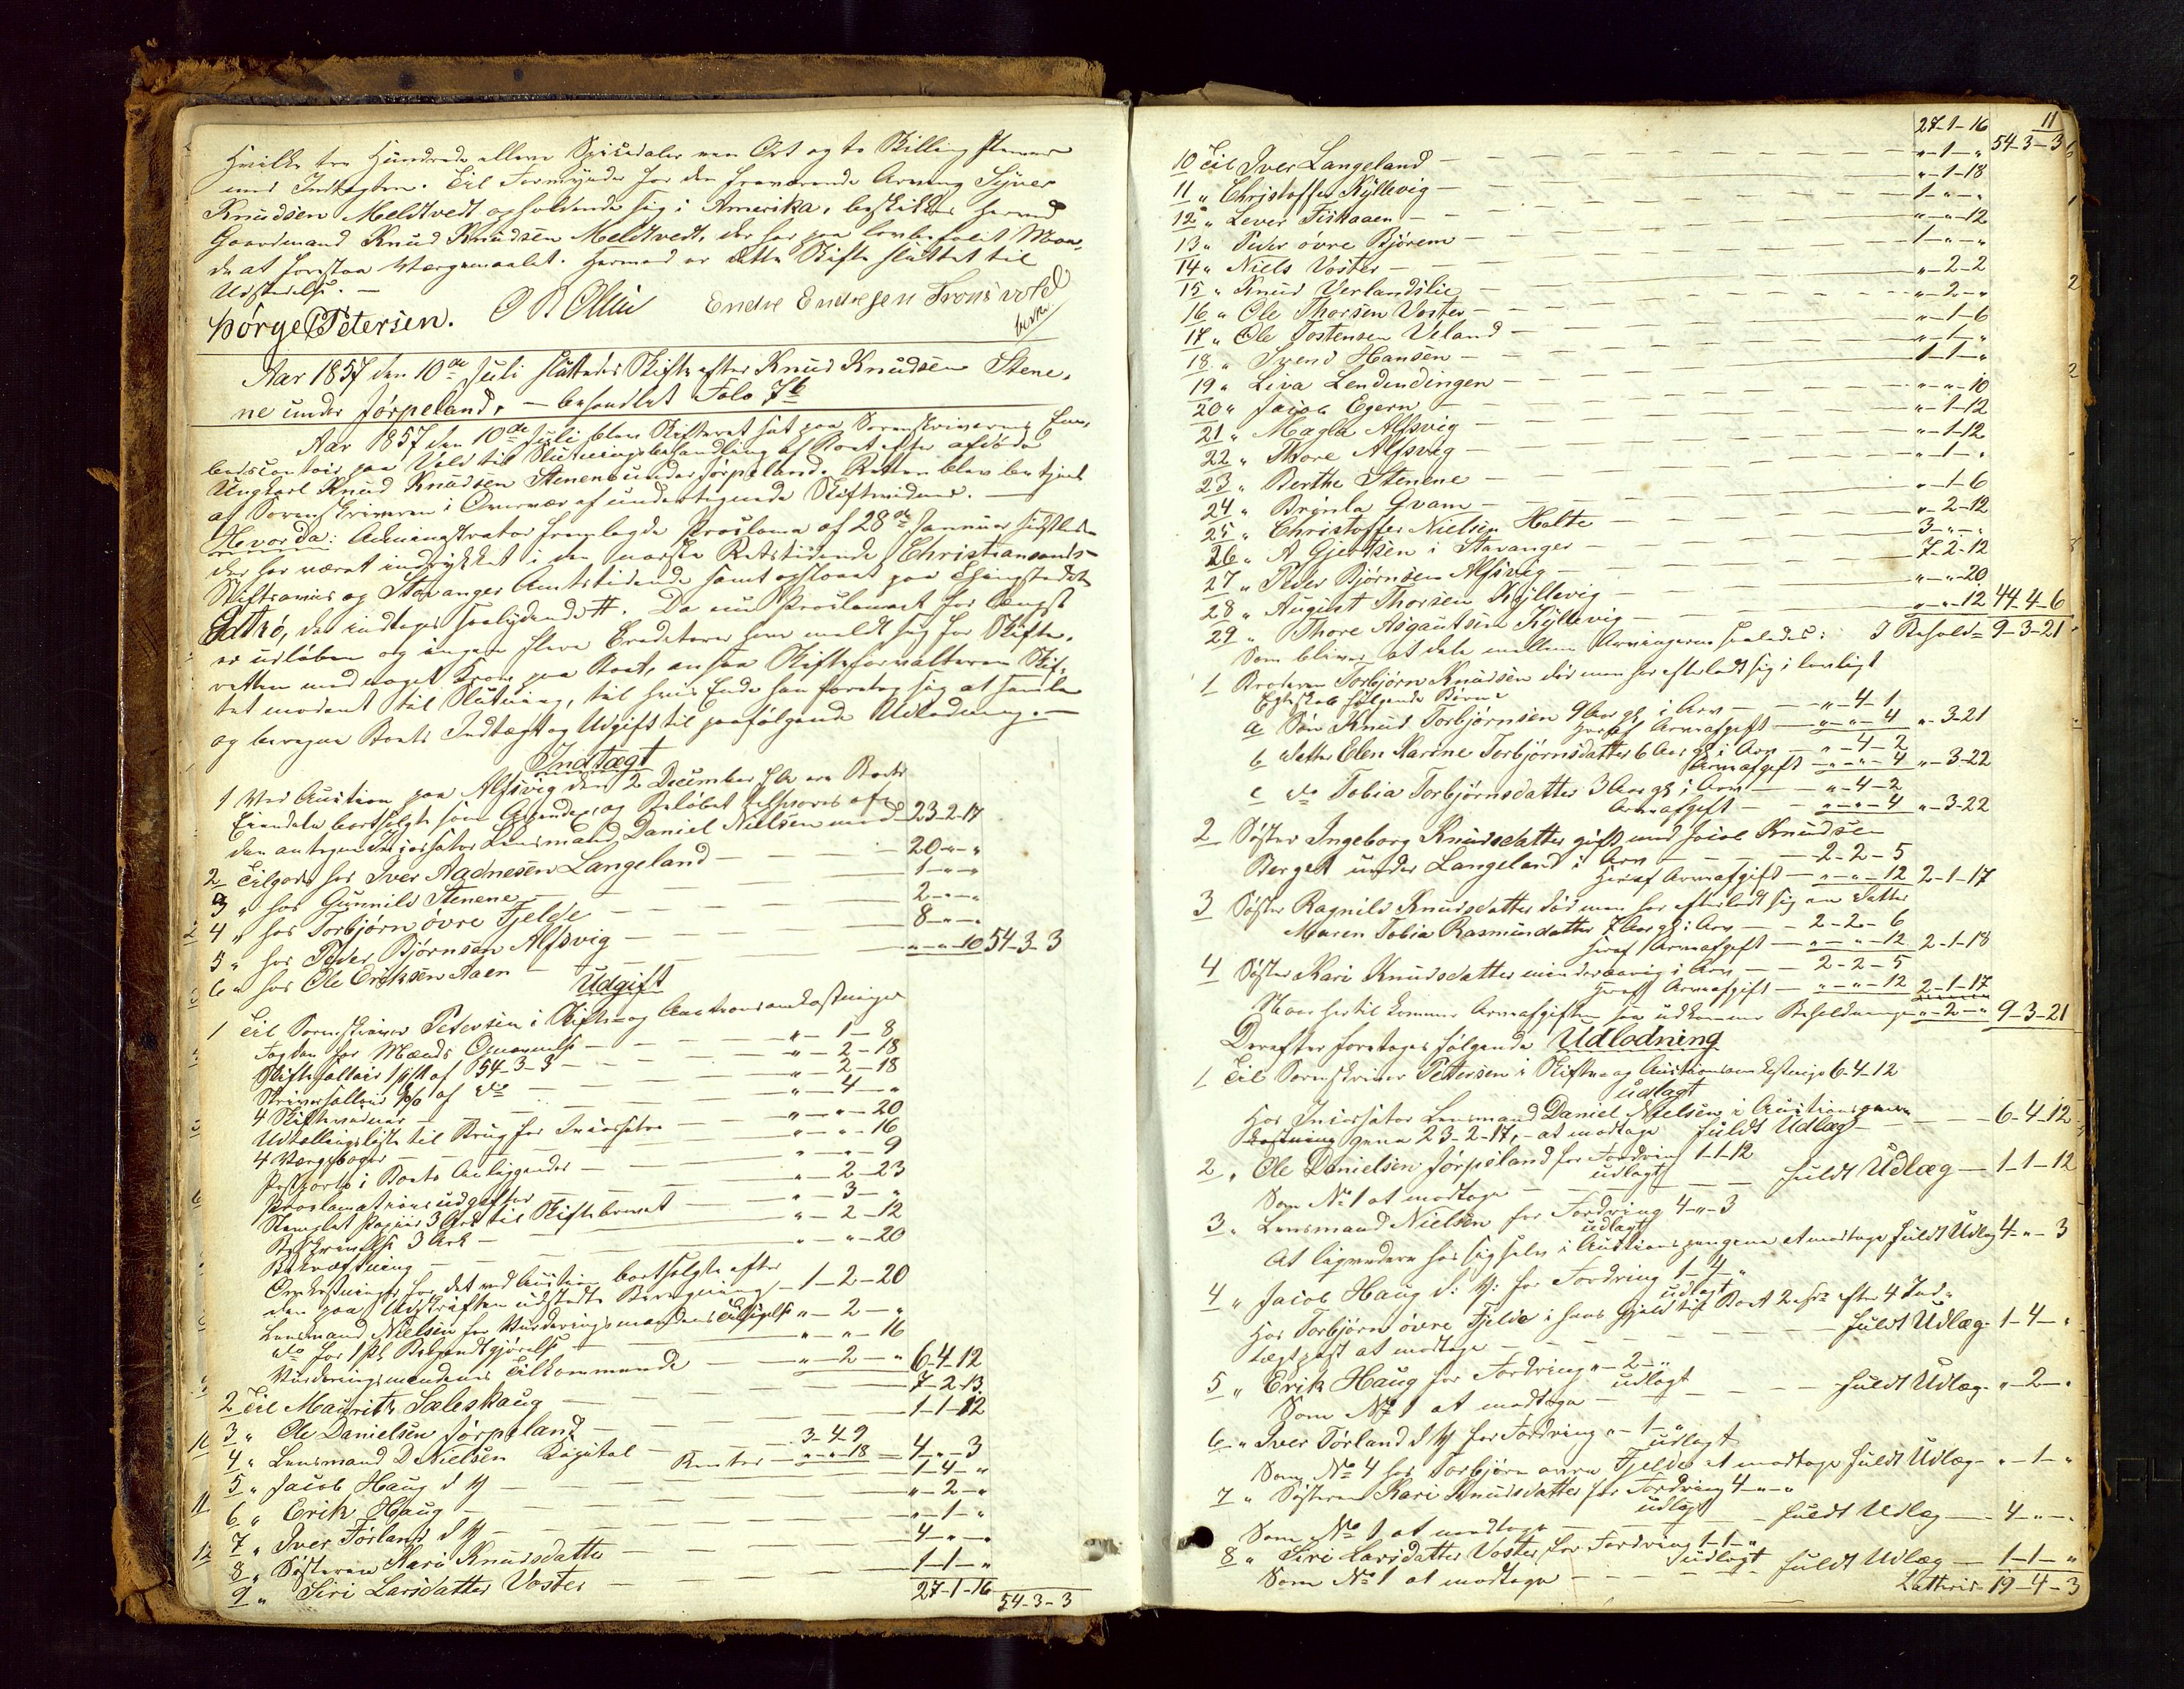 Hvilke tre Hundrede elleve Speciedaler een Ort og to Skilling stemmer
med Indtægten. Til Formynder for den fraværende Arving Syver
Knudsen Meldtvedt opholdende sig i Amerika, beskikkes herved
Gaardmand Knud Knudsen Meldtvedt, der har paa lovbefalet Maa-
de at forestaa Værgemaalet. Hermed er dette Skifte sluttet til
Udstedelse. —
Børge Petersen. Endre Endresen Tronsvold
Aar 1857 den 10de Juli sluttedes Skifte efter Knud Knudsen Stene-
ne under Jörpeland, — behandlet Folo 7b
Aar 1857 den 10de Juli blev Skifteret sat paa Sorenskriverens Em-
bedscontoir paa Vold til Slutningsbehandling af Boet efter afdöde
Ungkarl Knud Knudsen Stenene under Jörpeland. Retten blev betjent
af Sorenskriveren i Overvær af undertegnede Skiftevidner. —
Hvorda: Administrator fremlagde Proclama af 28de Januar sidstleden
der har været indrykket i den norske Retstidende, Christiansands-
Stiftsavis og Stavanger Amtstidende samt opslaaet paa Thingstedet
Idtsö, der indtages saalydende #. Da nu Proclamaet for længst
er udlöben og ingen flere Creditorer have meldt sig for Skifte-
retten med noget Krav paa Boet, ansaa Skifteforvalteren Skif-
tet modent til Slutning, til hvis Ende han foretog sig at samle
og beregne Boets Indtægt og Udgift til paafölgende Udlodning. —
Indtægt
1 Ved Auction paa Alfsvig den 2 December f. A. ere Boets
Eiendele bortsolgte som og Belöbet tilsvares af
den antagne Incassator Lensmand Daniel Nielsen med 23-2-17
2 Tilgode hos Iver Aadnesen Langeland — 20-"-"
3 " hos Gunnild Stenene — 1-"-"
4 " hos Torbjörn övre Fjelde — 2-"-"
5 " hos Peder Björnsen Alfsvig — 8-"-"
6 " hos Ole Eriksen Aaen — "-"-10 54-3-3
Udgift
1 Til Sorenskriver Petersen i Skifte- og Auctionsomkostninger
for Mænds — "-1-8
Skiftesallair 1 p% af 54-3-3 — "-2-18
Skriversallair % af do — "-2-18
4 Skiftevidner — "-4-"
Udtællingsliste til Brug for Incassator — "-"-20
4 Værgebøger — "-"-16
Postporto i Boets Anliggender — "-"-9
Proclamationsudgifter — "-2-23
Stemplet Papiir 3 Ark til Skiftebrevet — "-3-"
Beskrivelse 3 Ark — "-2-12
Bekræftning — "-"-20
Omkostninger for det ved Auction bortsolgte efter
den paa Udskriften udstedte Beregning — 1-2-20
Lensmand Nielsen for Vurderingsmændenes Tilsigelse "-2-"
do for 1ste Bekjendtgjörelse — "-"-16
Vurderingsmændenes Tilkommende — "-2-" 6-4-12
2 Til Maurits Sæleskaug — 7-2-13
3 " Ole Danielsen Jörpeland — 1-1-12
4 " Lensmand D Nielsen Kapital — 3-4-9
Renter — "-"-18 = 4-"-3
5 " Jacob Haug d. y. — 1-4-"
6 " Erik Haug — "-2-"
7 " Iver Törland d y — "-1-"
8 " Söstren Kari Knudsdatter — 4-"-"
9 " Siri Larsdatter Voster — 1-1-"
27-1-16 54-3-3
11
27-1-16 54-3-3
10 Til Iver Langeland — "-1-"
11 " Christoffer Kyllevig — "-1-18
12 " Lever Fiskaaen — 1-"-"
13 " Peder övre Björeim — "-"-12
14 " Niels Voster — 1-"-"
15 " Knud Verlandslie — "-2-2
16 " Ole Thorsen Voster — "-2-"
17 " Ole Tostensen Veland — "-1-6
18 " Svend Hansen — "-1-"
19 " Liva Lendendingen — 1-1-"
20 " Jacob Egern — "-"-10
21 " Magla Alfsvig — "-1-12
22 " Thore Alfsvig — "-1-12
23 " Berthe Stenene — "-1-"
24 " Brynla Qvam — "-1-6
25 " Christoffer Nielsen Holte — "-2-12
26 " A Gjertsen i Stavanger — 3-"-"
27 " Peder Björnsen Alfsvig — 7-2-12
28 " August Thorsen Kyllevig — "-"-20
29 " Thore Asgautsen Kyllevig — "-"-12 44-4-6
Som bliver at dele mellem Arvingerne saaledes: I Behold = 9-3-21
1 Broderen Torbjörn Knudsen död men har efterladt sig i lovligt
Egteskab fölgende Börn:
a Sön Knud Torbjörnsen 9 Aar gl. i Arv — "-4-1
Heraf Arveafgift "-"-4 "-3-21
b Datter Elen Karine Torbjörnsdatter 6 Aar gl i Arv — "-4-2
Arveafgift — "-"-4 "-3-22
c do Tobia Torbjörnsdatter 3 Aar gl. i Arv — "-4-2
Arveafgift — "-"-4 "-3-22
2 Söster Ingeborg Knudsdatter gift med Jacob Knudsen
Berget under Langeland i Arv — 2-2-5
Heraf Arveafgift — "-"-12 2-1-17
3 Söster Ragnild Knudsdatter död men har efterladt sig en Datter
Maren Tobia Rasmusdatter 7 Aar gl. i Arv — 2-2-6
Heraf Arveafgift — "-"-12 2-1-18
4 Söster Kari Knudsdatter mindreaarig i Arv — 2-2-5
Heraf Arveafgift — "-"-12 2-1-17
Naar hertil kommer Arveafgiften saa udkommer Beholdningen "-2-" 9-3-21
Derefter foretages fölgende Udlodning
1 Til Sorenskriver Petersen i Skifte- og Auctionsomkostninger 6-4-12
udlagt
Hos Incassator Lensmand Daniel Nielsen i Auctions
gene 23-2-17, at modtage fuldt Udlæg — 6-4-12
2 " Ole Danielsen Jörpeland for Fordring 1-1-12
udlagt
Som No 1 at modtage — fuldt Udlæg — 1-1-12
3 " Lensmand Nielsen for Fordring 4-"-3
udlagt
At hos sig selv i Auctionspengene at modtage fuldt Udlæg 4-"-3
4 " Jacob Haug d: y: for Fordring 1-4-"
udlagt
Hos Torbjörn övre Fjelde i hans Gjæld til Boet 2 efter 4 Ind-
tægtpost at modtage — fuldt Udlæg 1-4-"
5 " Erik Haug for Fordring "-2-"
udlagt
Som No 1 at modtage — fuldt Udlæg "-2-"
6 " Iver Törland d y for Fordring "-1-"
udlagt
Som No 4 hos Torbjörn övre Fjelde at modtage fuldt Udlæg "-1-"
7 " Söstren Kari Knudsdatter for Fordring 4-"-"
udlagt
Som No 1 at modtage — fuldt Udlæg — 4-"-"
8 " Siri Larsdatter Voster for Fordring 1-1-"
udlagt
Som No 1 at modtage — fuldt Udlæg — 1-1-"
Latteris 19-4-3